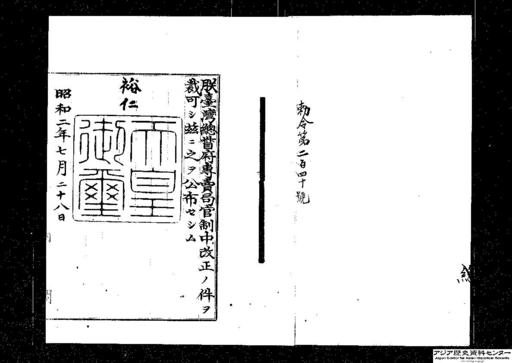 勅令第二百四十號
朕臺灣總督府專賣局官制中改正ノ件ヲ
裁可シ茲ニ之ヲ公布セシム
裕仁
天皇
御璽
昭和二年七月二十八日
アジア歴史資料センター
Japan Center for Asian Historical Records